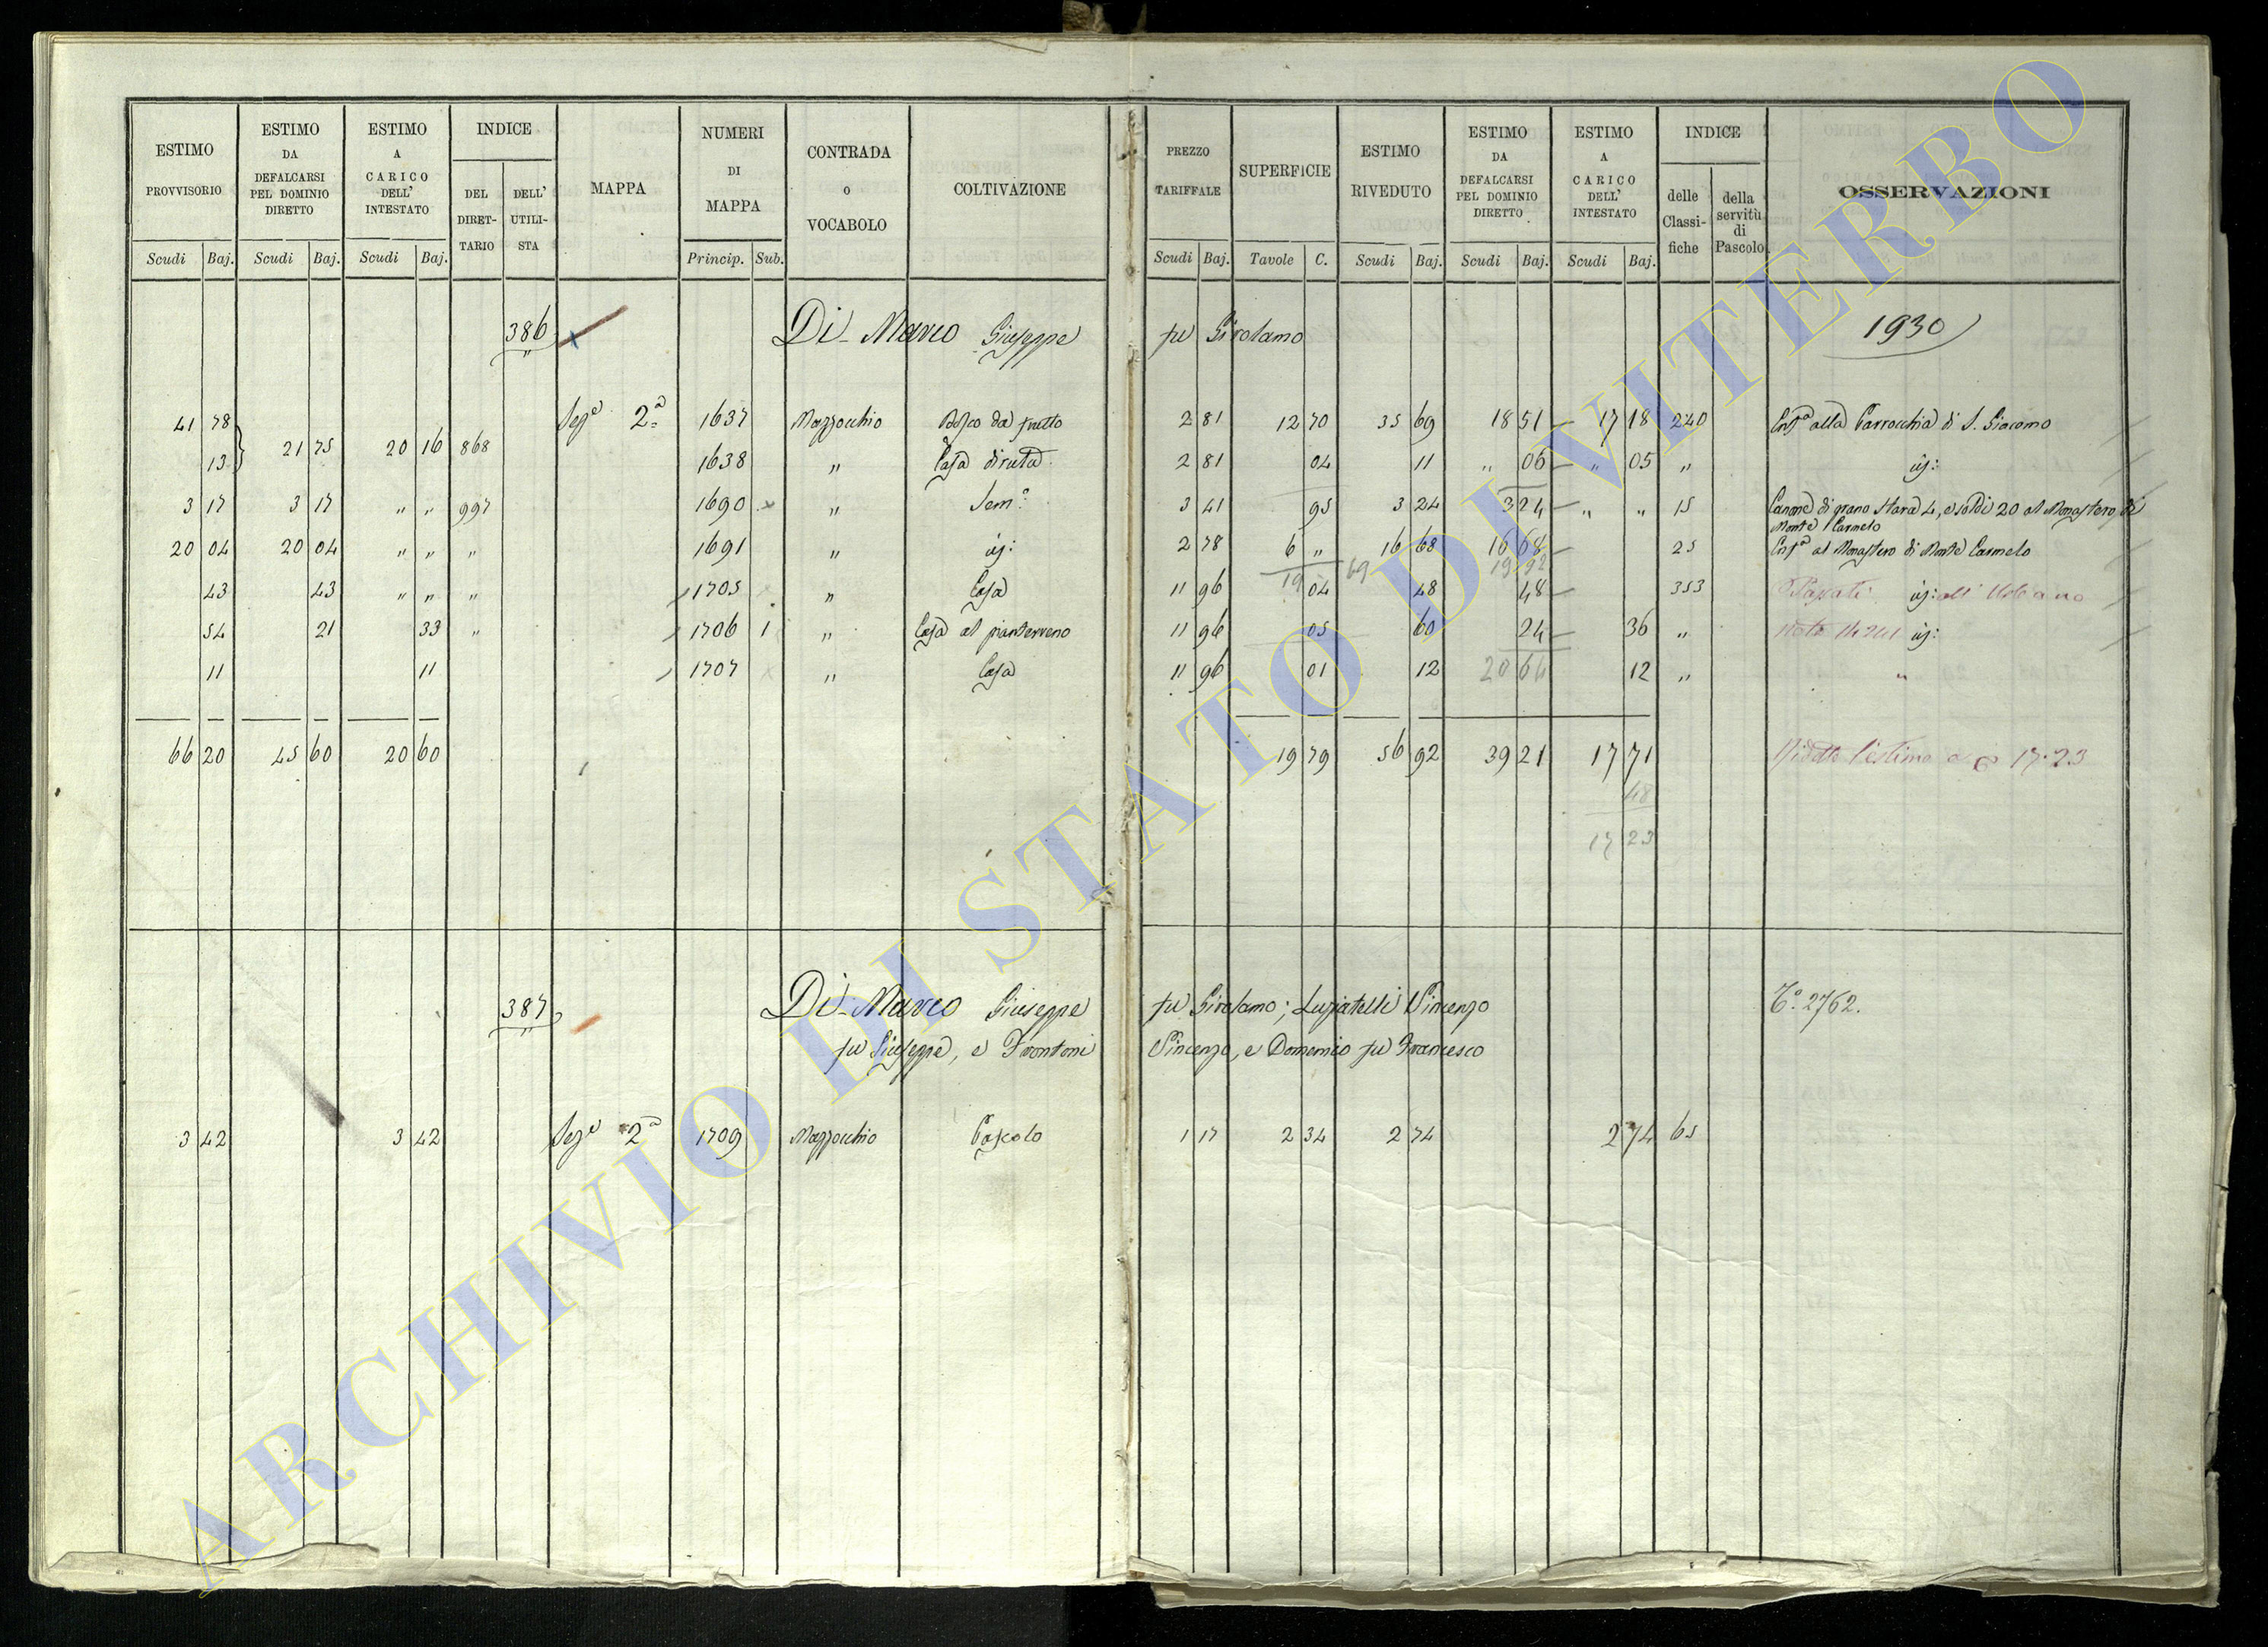 ESTIMO PROVVISORIO Scudi Baj.
ESTIMO DA DEFALCARSI PEL DOMINIO DIRETTO Scudi Baj.
ESTIMO A CARICO DELL' INTESTATO Scudi Baj.
INDICE DEL DIRET-TARIO DELL' UTILI-STA
MAPPA
NUMERI DI MAPPA Princip. Sub.
CONTRADA O VOCABOLO
COLTIVAZIONE
PREZZO TARIFFALE Scudi Baj.
SUPERFICIE Tavole C.
ESTIMO RIVEDUTO Scudi Baj.
ESTIMO DA DEFALCARSI PEL DOMINIO DIRETTO Scudi Baj.
ESTIMO A CARICO DELL' INTESTATO Scudi Baj.
INDICE delle Classi-fiche della servitù di Pascolo
OSSERVAZIONI
386 Di Marco Giuseppe fu Girolamo 1930
41 78 Sezᵉ 2ª 1637 Mazzocchio Bosco da frutto 2 81 12 70 35 69 18 51 17 18 240 Enfª alla Parrocchia di S. Giacomo
13 21 75 20 16 868 1638 " Casa diruta 2 81 04 11 " 06 " 05 " id:
3 17 3 17 " " 997 1690 " Sem° 3 41 95 3 24 3 24 " " 15 Canone di grano Stara 4, e soldi 20 al Monastero di
Monte Carmelo
20 04 20 04 " " " 1691 " id: 2 78 6 " 16 68 16 68 25 Enfª al Monastero di Monte Carmelo
19 69 19 92
43 43 " " " 1705 " Casa 11 96 04 48 48 353 id:
54 21 33 " 1706 1 " Casa al pianterreno 11 96 05 60 24 36 " id:
11 11 1707 " Casa 11 96 01 12 20 64 12 " "
66 20 45 60 20 60 19 79 56 92 39 21 17 71 Ridotto l'estimo a 17.23
48
17 23
387 Di Marco Giuseppe fu Girolamo; Luziatelli Vincenzo T° 2762.
fu Giuseppe, e Frontoni Vincenzo, e Domenico fu Francesco
3 42 3 42 Sezᵉ 2ª 1709 Mazzocchio Pascolo 1 17 2 34 2 74 2 74 65
ARCHIVIO DI STATO DI VITERBO